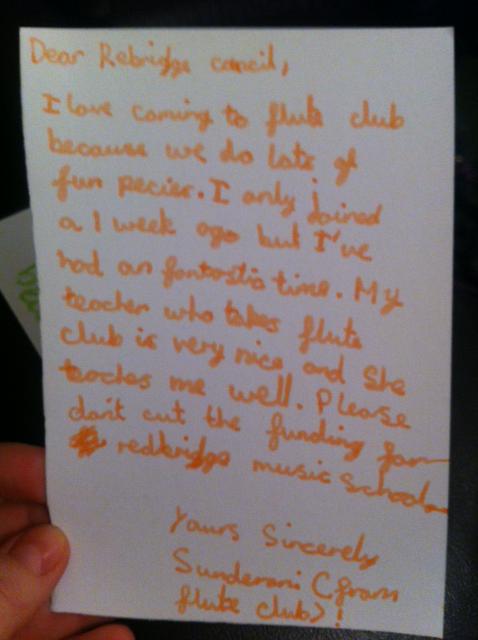 Dear Rebridge cancil,
I love coming to flute club
because we do lots of
fun pecies. I only joined
a 1 week ago but I've
had an fantastic time. My
teacher who takes flute
club is very nice and she
teaches me well. Please
don't cut the funding for
redbridge music school
Yours Sincerely
Sunderani (from
flute club)!